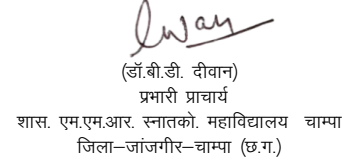 (डॉ.बी.डी. दीवान)
प्रभारी प्राचार्य
शास. एम.एम.आर. स्नातको. महाविद्यालय चाम्पा
जिला–जांजगीर–चाम्पा (छ.ग.)